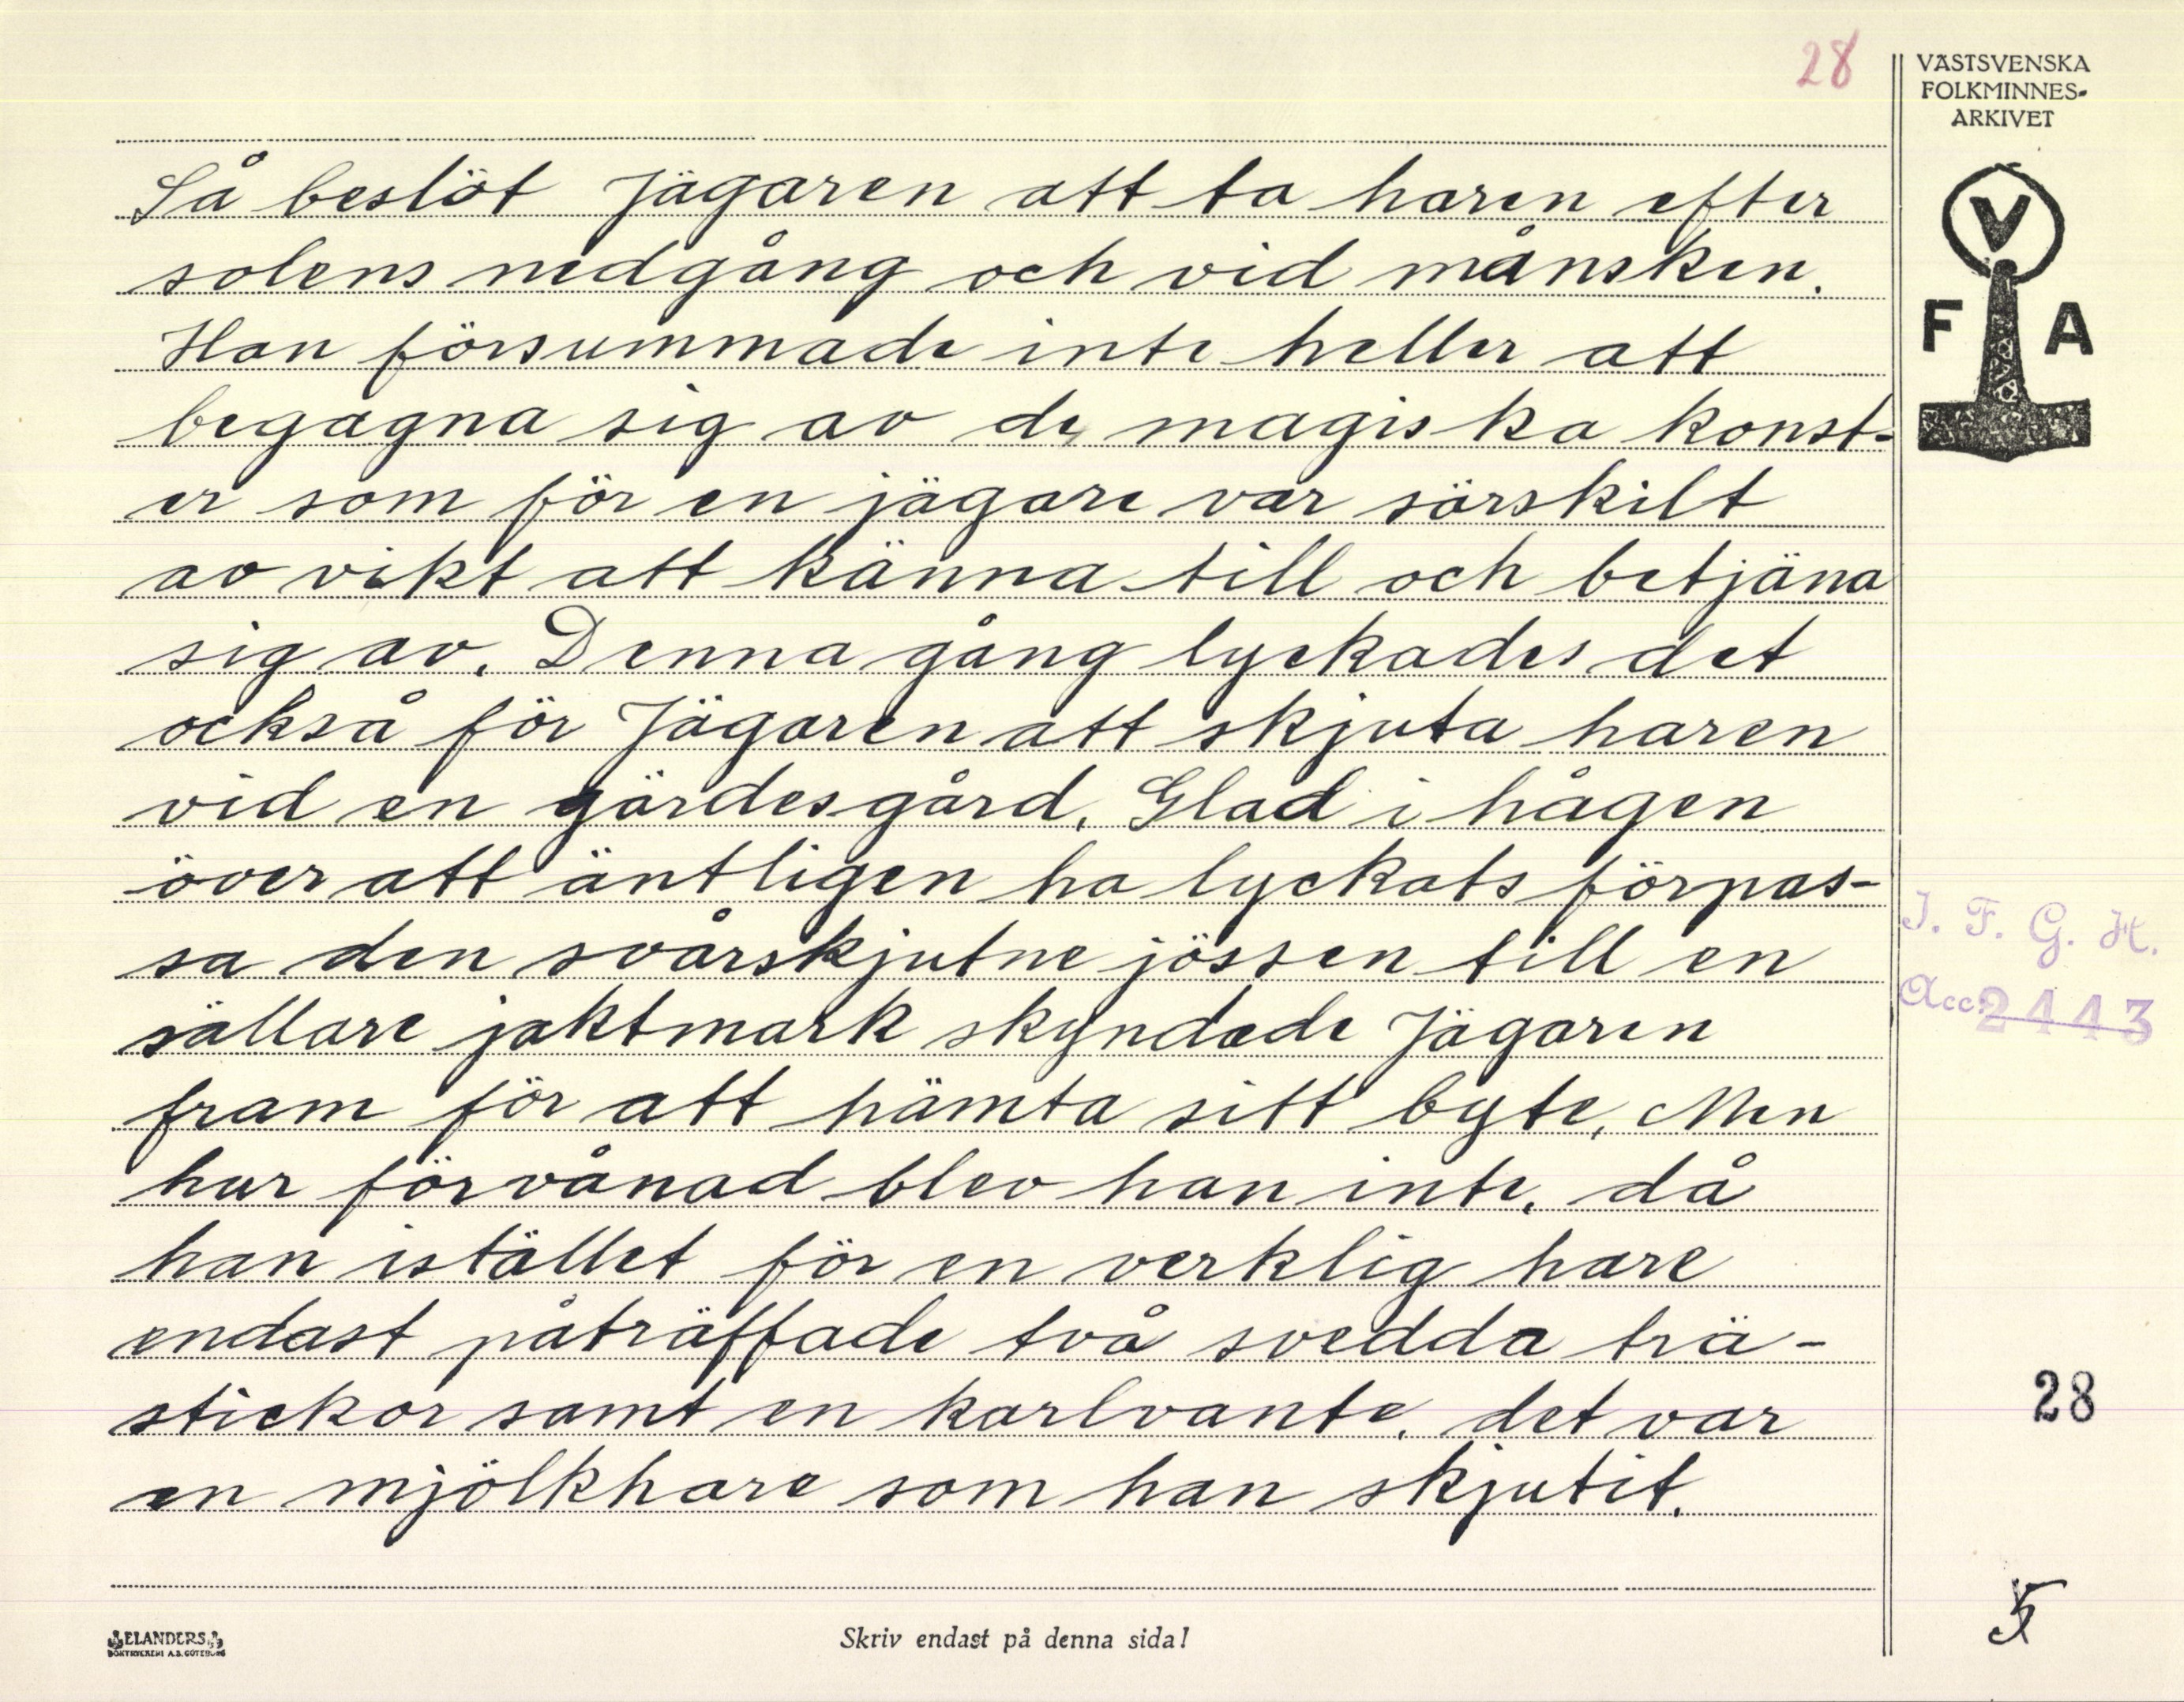 28
VÄSTSVENSKA
FOLKMINNES-
ARKIVET
V
F A
Så beslöt Jägaren att ta haren efter
solens nedgång och vid månsken.
Han försummade inte heller att
begagna sig av de magiska konst-
er som för en jägare var särskilt
av vikt att känna till och betjäna
sig av. Denna gång lyckades det
också för Jägaren att skjuta haren
vid en gärdesgård. Glad i hågen
över att äntligen ha lyckats förpas-
sa den svårskjutne jössen till en
sällare jaktmark skyndade Jägaren
fram för att hämta sitt byte. Men
hur förvånad blev han inte, då
han istället för en verklig hare
endast påträffade två svedda trä-
stickor samt en karlvante, det var
en mjölkhare som han skjutit.
I. F. G. H.
Acc. 2443
28
5
ELANDERS
BOKTRYCKERI A.B. GÖTEBORG
Skriv endast på denna sida!